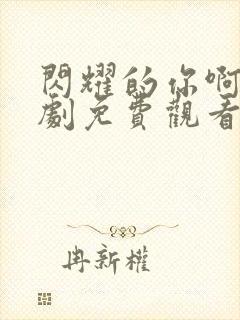 閃耀的你啊
劇免費觀看
冉新權